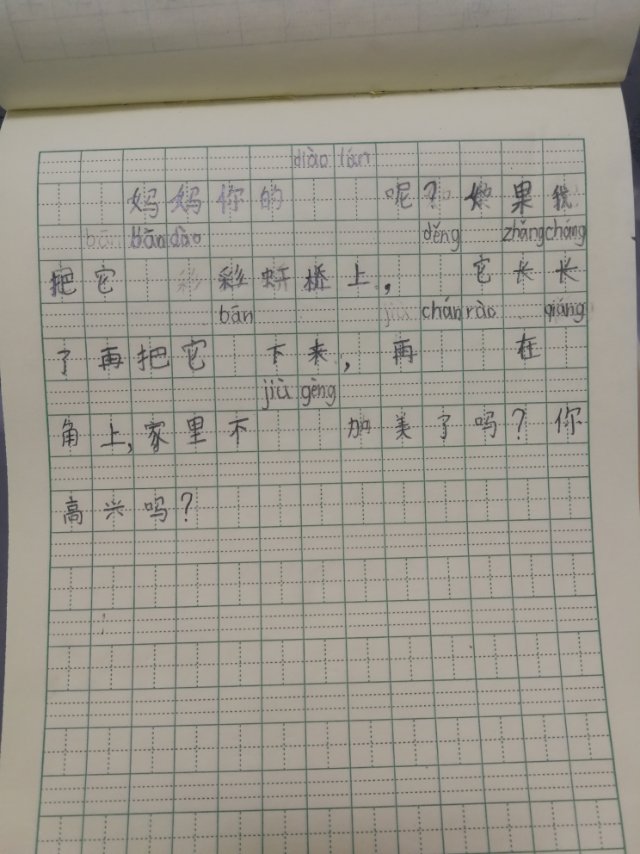 diào lán
妈妈你的呢？如果我
bān bān dào děng zhǎng cháng
把它彩彩虹桥上，它长长
bān jiù chán rào qiáng
了再把它下来，再在
jiù gèng
角上，家里不加美了吗？你
高兴吗？